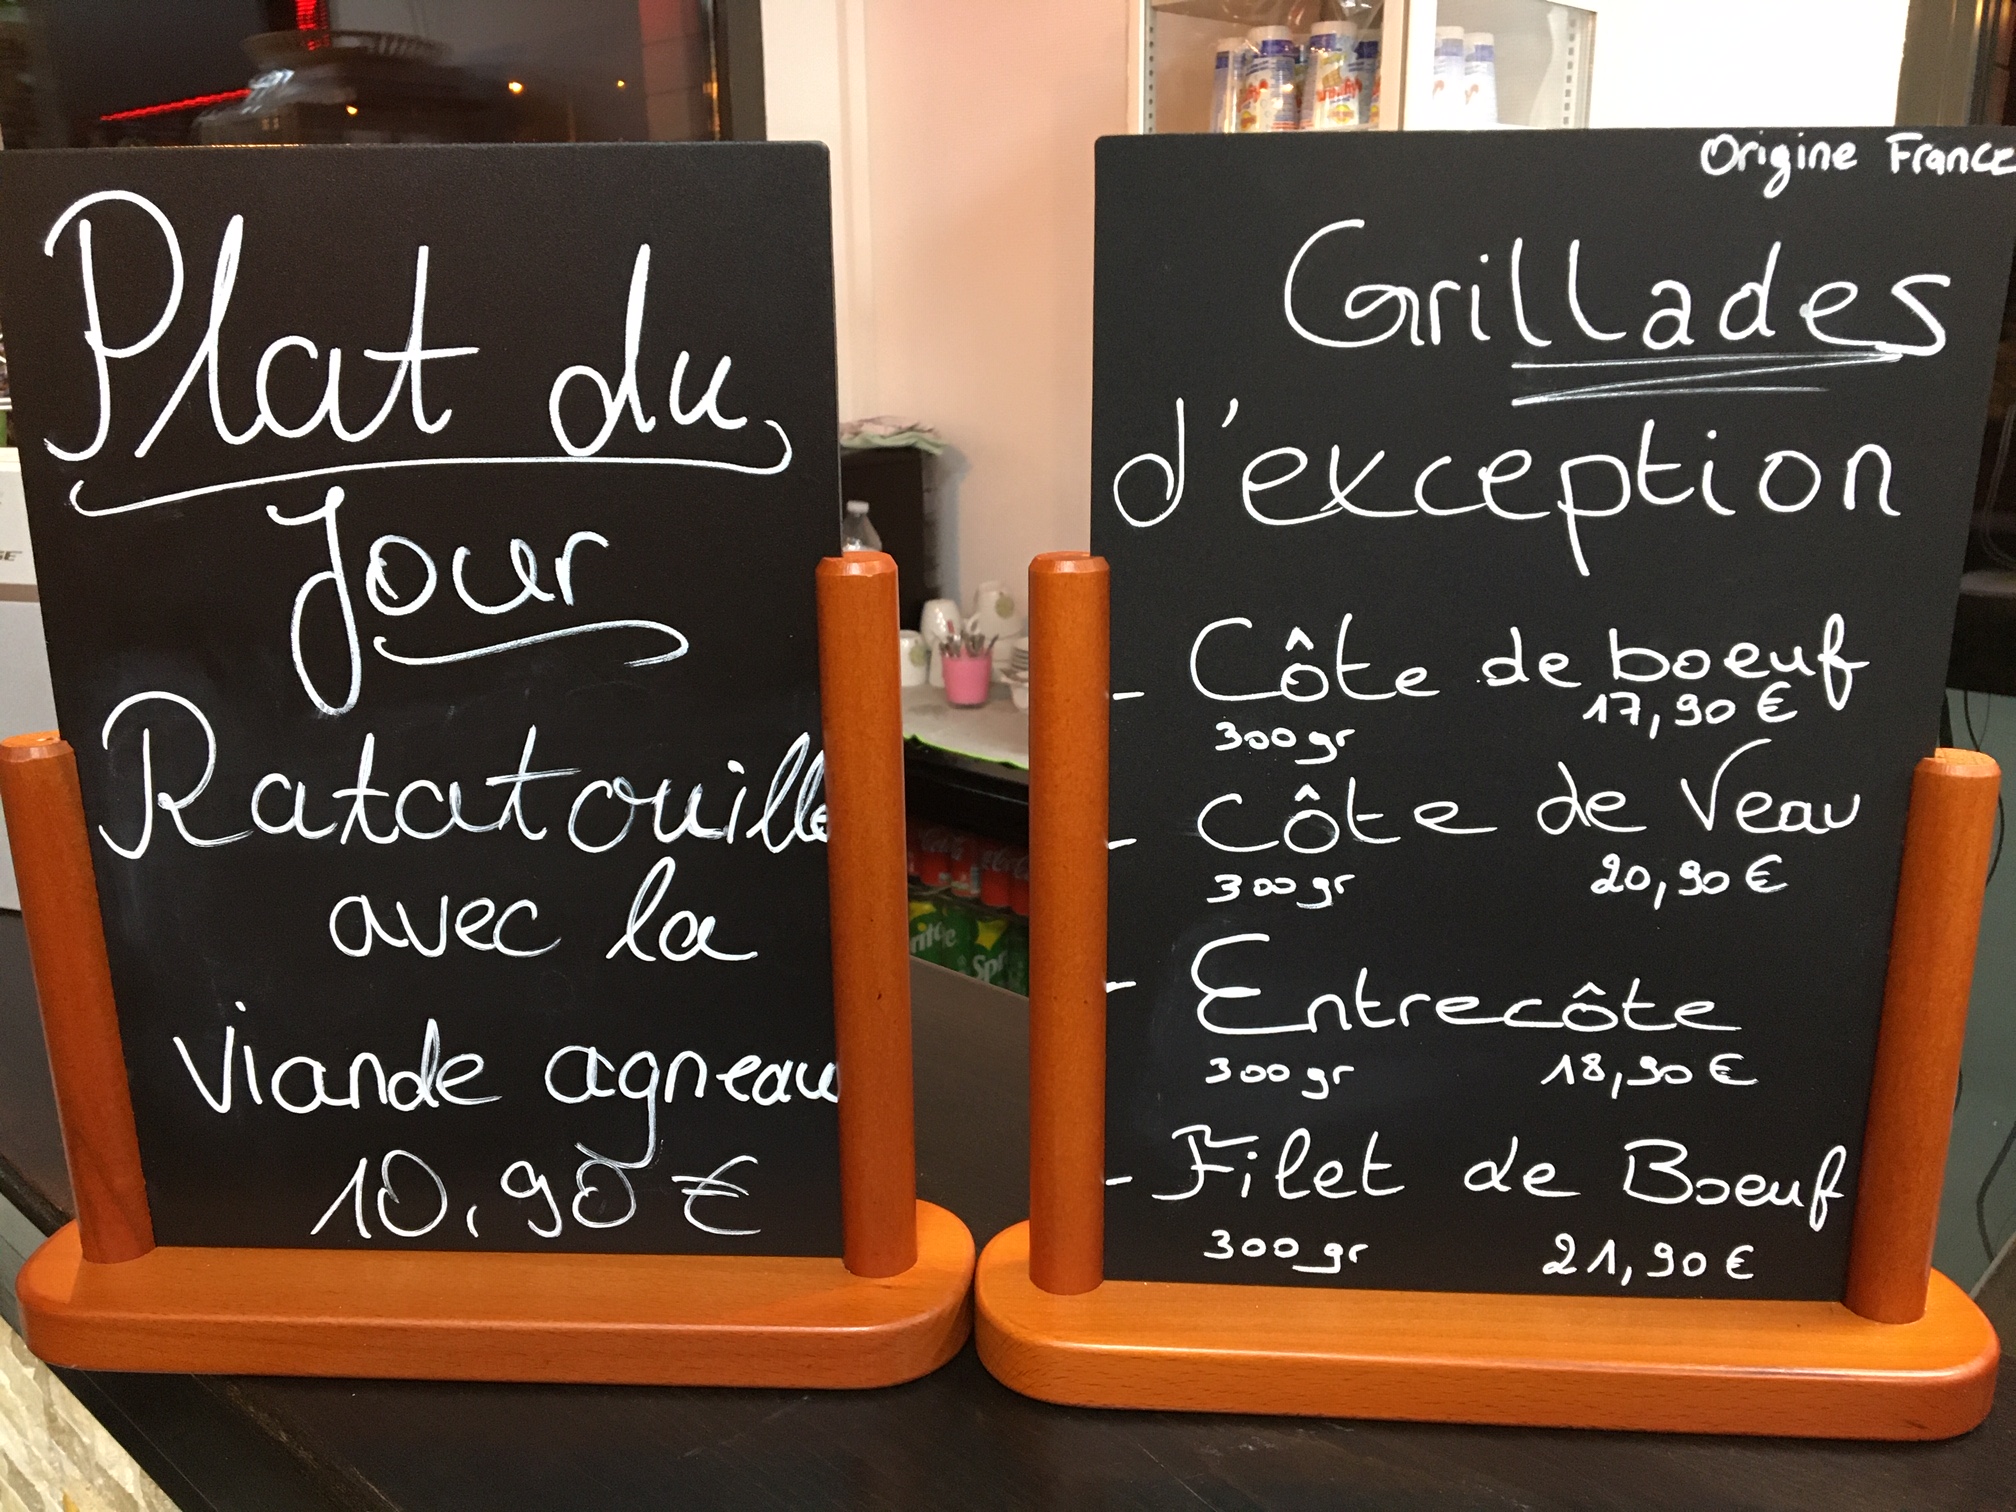 Plat du
Jour
Ratatouille
avec la
viande agneau
10,90 €
Origine France
Grillades
d'exception
- Côte de boeuf
300gr 17,90 €
- Côte de Veau
300gr 20,90 €
- Entrecôte
300gr 18,90 €
- Filet de Boeuf
300gr 21,90 €